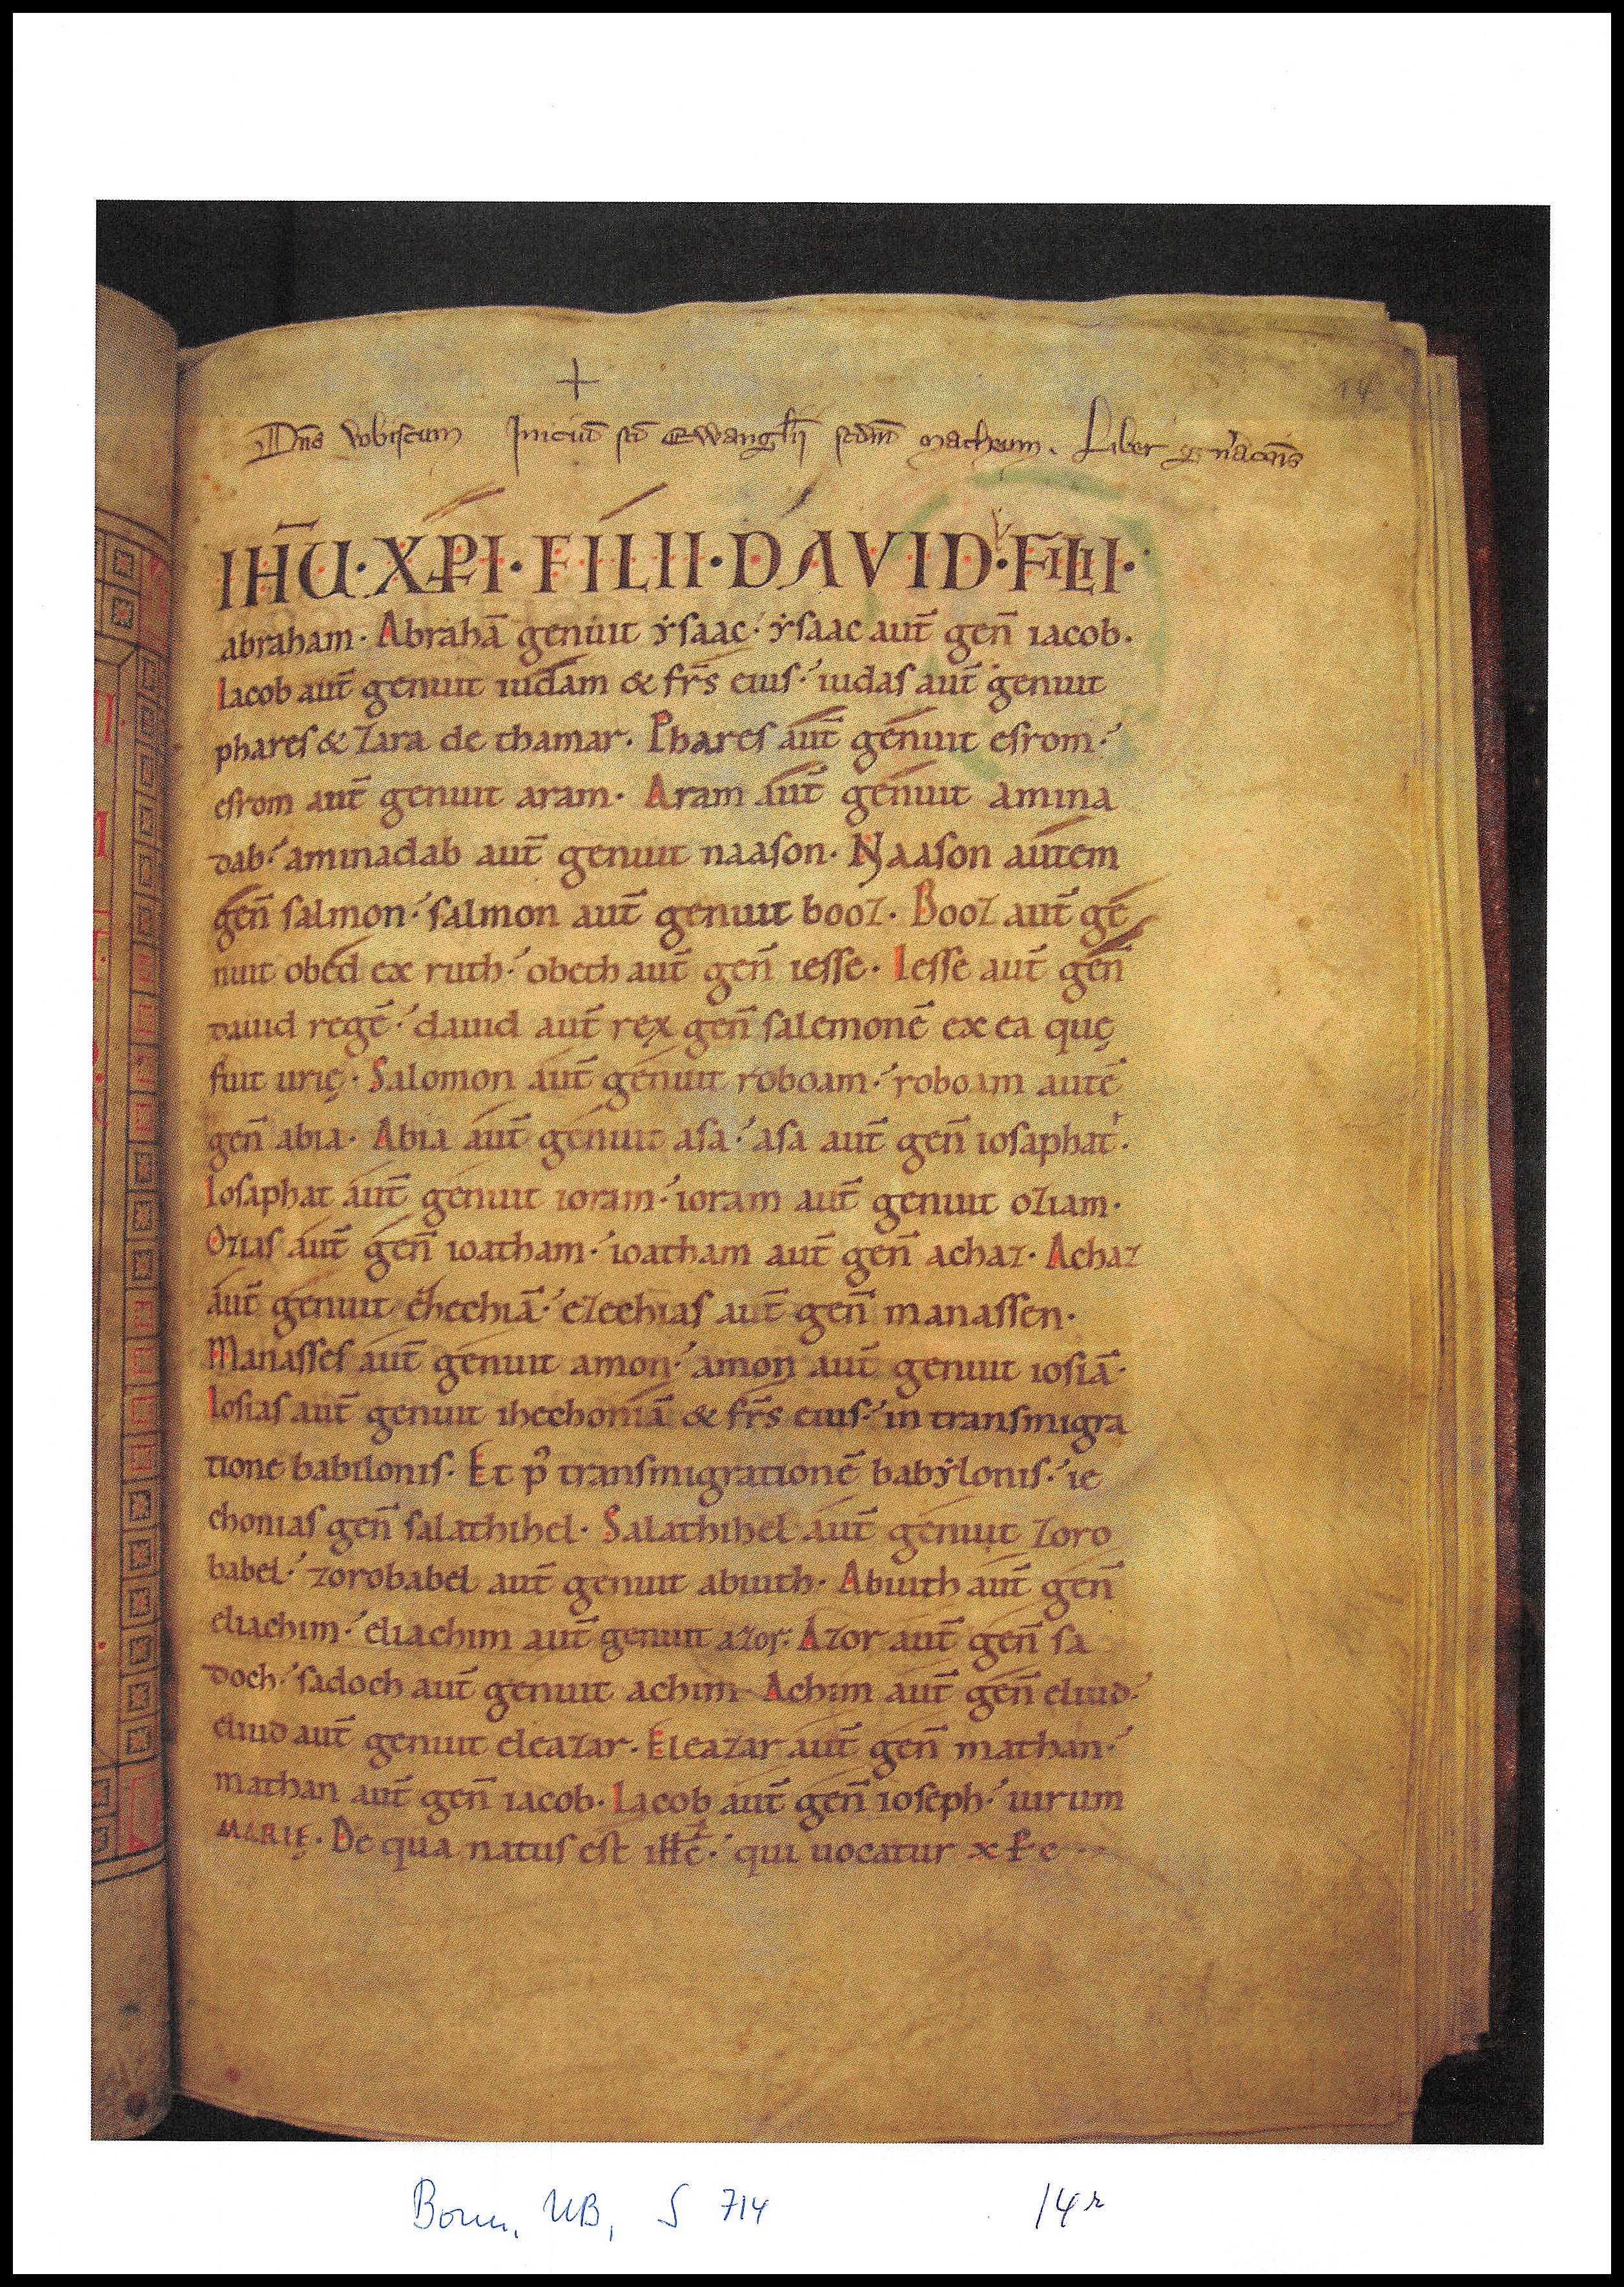 14
Dn̄s vobiscum Iniciū sc̄i Ewangl̄ii scdm̄ matheum. Liber gn̄ac̄ois
IH̄U·XP̄I·FILII·DAVID·FILII·
abraham· Abrahā genuit ẏsaac·' ẏsaac aut̄ gen̄ iacob.
Iacob aut̄ genuit iudam & fr̄s eius·' iudas aut̄ genuit
phares & zara de thamar. Phares aut̄ genuit esrom·'
esrom aut̄ genuit aram· Aram aut̄ genuit amina
dab·' aminadab aut̄ genuit naason· Naason autem
gen̄ salmon·' salmon aut̄ genuit booz. Booz aut̄ ge
nuit obed ex ruth·' obeth aut̄ gen̄ iesse· Iesse aut̄ gen̄
dauid regē·' dauid aut̄ rex gen̄ salemonē ex ea quę
fuit urię· Salomon aut̄ genuit roboam·' roboam autē
gen̄ abia· Abia aut̄ genuit asa·' asa aut̄ gen̄ iosaphat·
Iosaphat aut̄ genuit ioram·' ioram aut̄ genuit oziam·
Ozias aut̄ gen̄ ioatham·' ioatham aut̄ gen̄ achaz· Achaz
aut̄ genuit ehechiā·' ezechias aut̄ gen̄ manassen·
Manasses aut̄ genuit amon·' amon aut̄ genuit iosiā·
Iosias aut̄ genuit ihechoniā & fr̄s eius·' in transmigra
tione babilonis· Et p̄ transmigrationē babẏlonis·' ie
chonias gen̄ salathihel· Salathihel aut̄ genuit zoro
babel·' zorobabel aut̄ genuit abiuth· Abiuth aut̄ gen̄
eliachim·' eliachim aut̄ genuit azor· Azor aut̄ gen̄ sa
doch·' sadoch aut̄ genuit achim· Achim aut̄ gen̄ eliud·'
eliud aut̄ genuit eleazar· Eleazar aut̄ gen̄ mathan·'
mathan aut̄ gen̄ iacob· Iacob aut̄ gen̄ ioseph·' uirum
MARIĘ· De qua natus est ih̄c·' qui uocatur xp̄c
Bonn, UB, S 714 14r